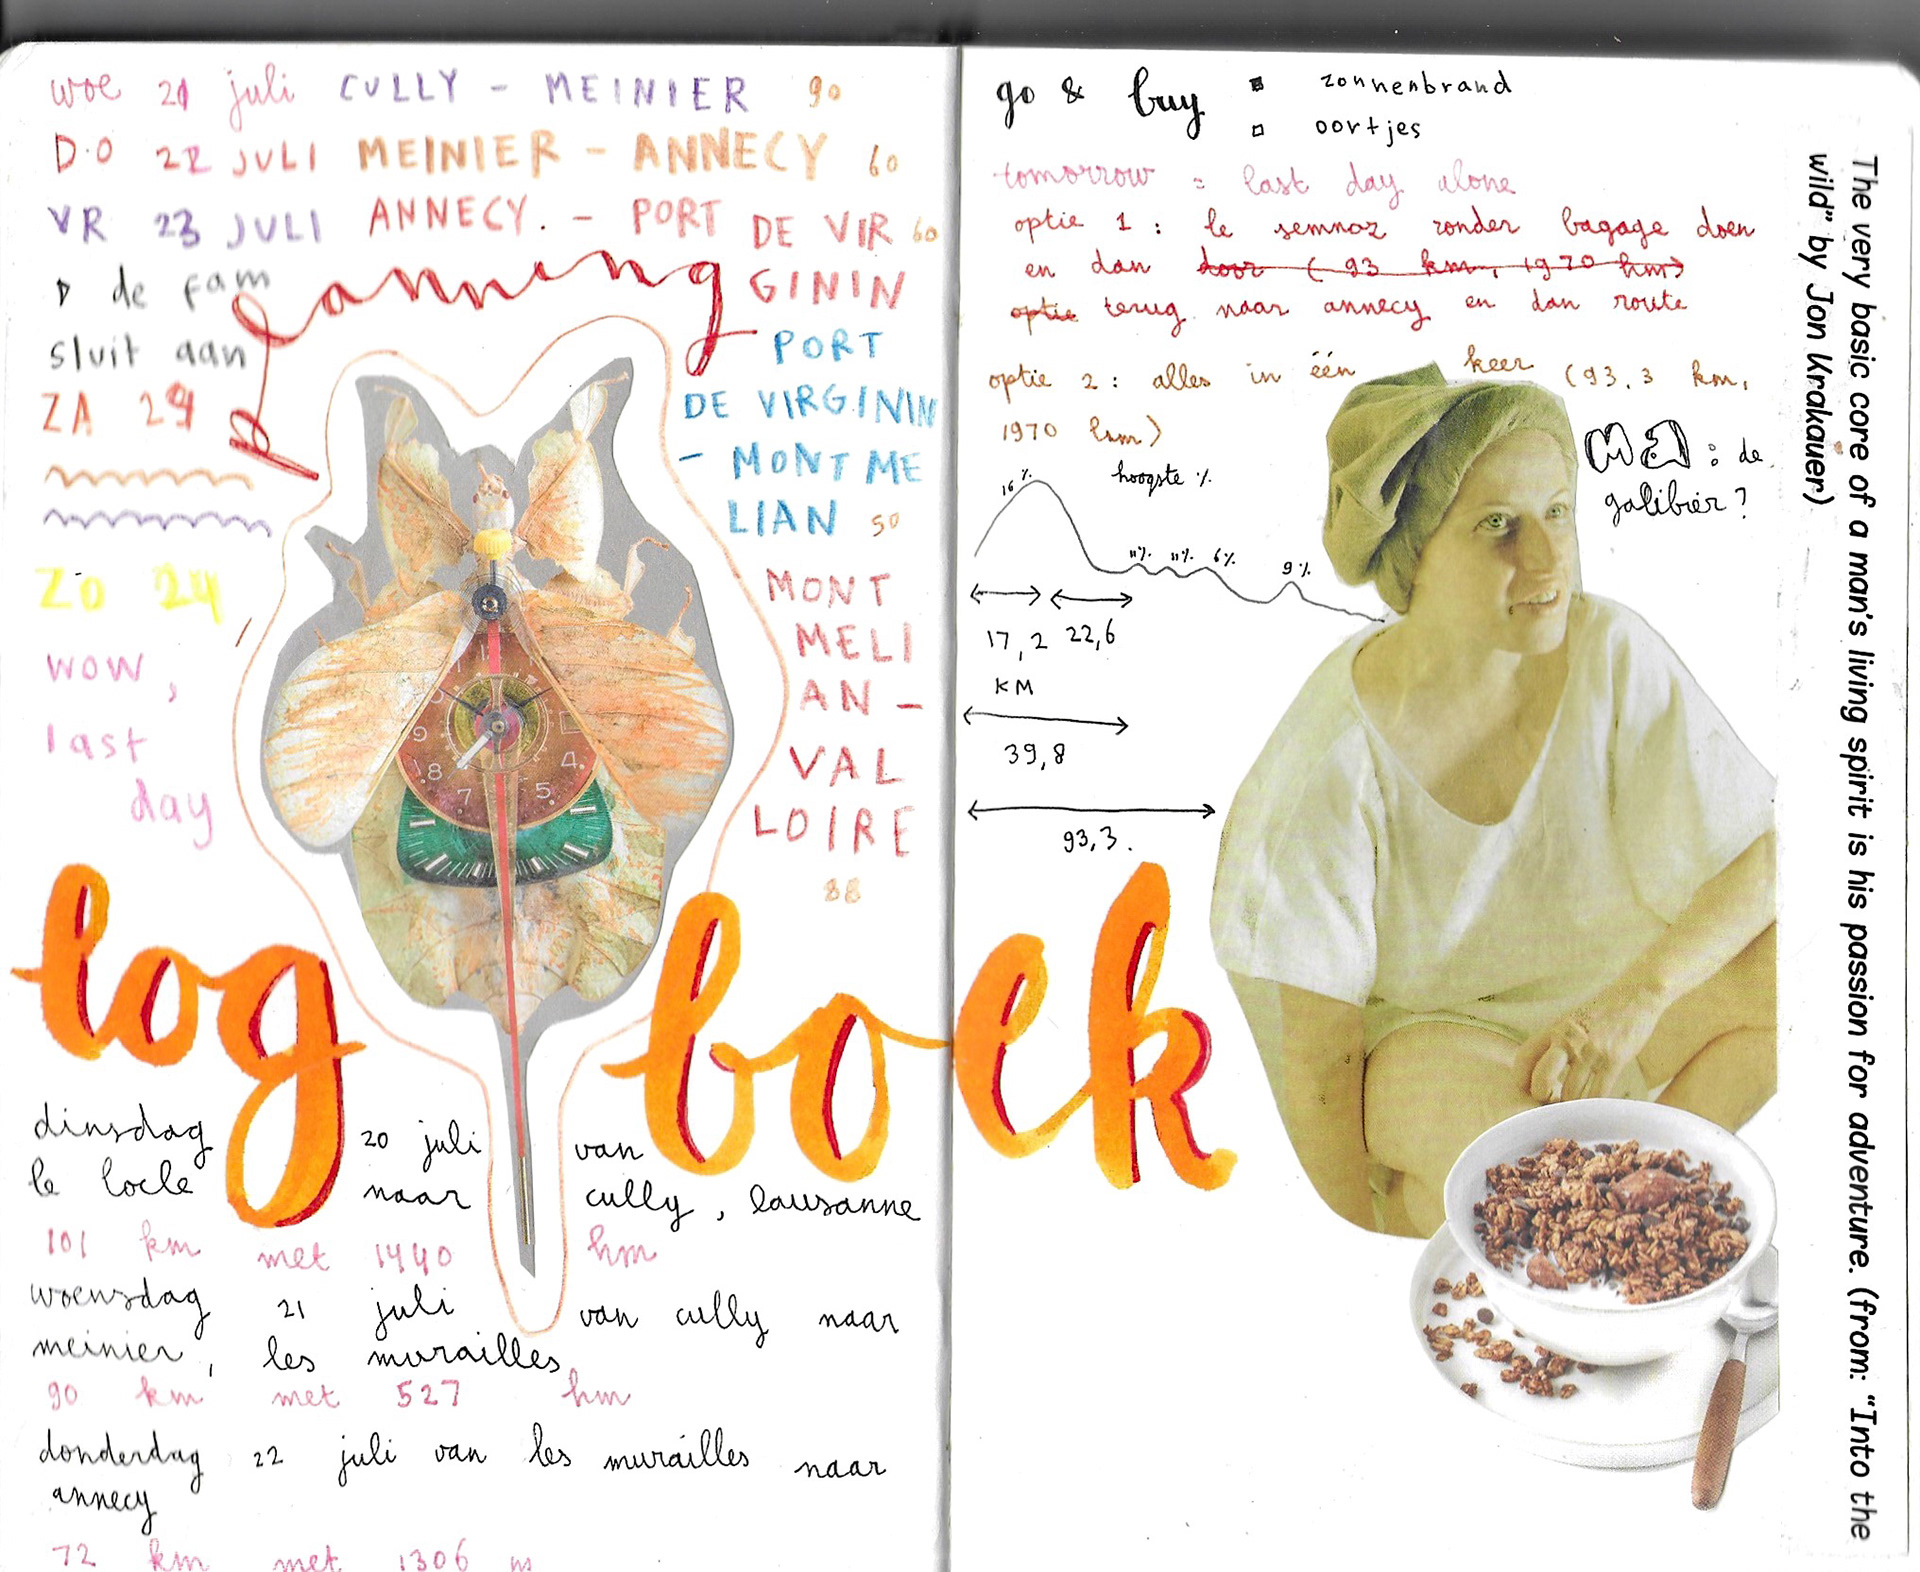 woe 21 juli CULLY - MEINIER 90
DO 22 JULI MEINIER - ANNECY 60
VR 23 JULI ANNECY. - PORT DE VIR 60
GININ
de fam
sluit aan
planning
ZA 24
PORT
DE VIRGININ
- MONTME
LIAN 50
ZO 24
wow,
last
day
MONT
MELI
AN -
VAL
LOIRE
88
9
8
7
5
4
log boek
dinsdag 20 juli van
le locle naar cully, lausanne
101 km met 1440 hm
woensdag 21 juli van cully naar
meinier, les murailles
90 km met 527 hm
donderdag 22 juli van les murailles naar
annecy
72 km met 1306 m
go & buy ■ zonnenbrand
□ oortjes
tomorrow = last day alone
optie 1: le semnoz zonder bagage doen
en dan door (93 km, 1970 hm)
optie terug naar annecy en dan route
optie 2: alles in één keer (93,3 km,
1970 hm)
ME: de
galibier?
hoogste %
16% 11% 11% 6% 9%
17,2 22,6
KM
39,8
93,3.
The very basic core of a man's living spirit is his passion for adventure. (from: "Into the
wild" by Jon Krakauer)